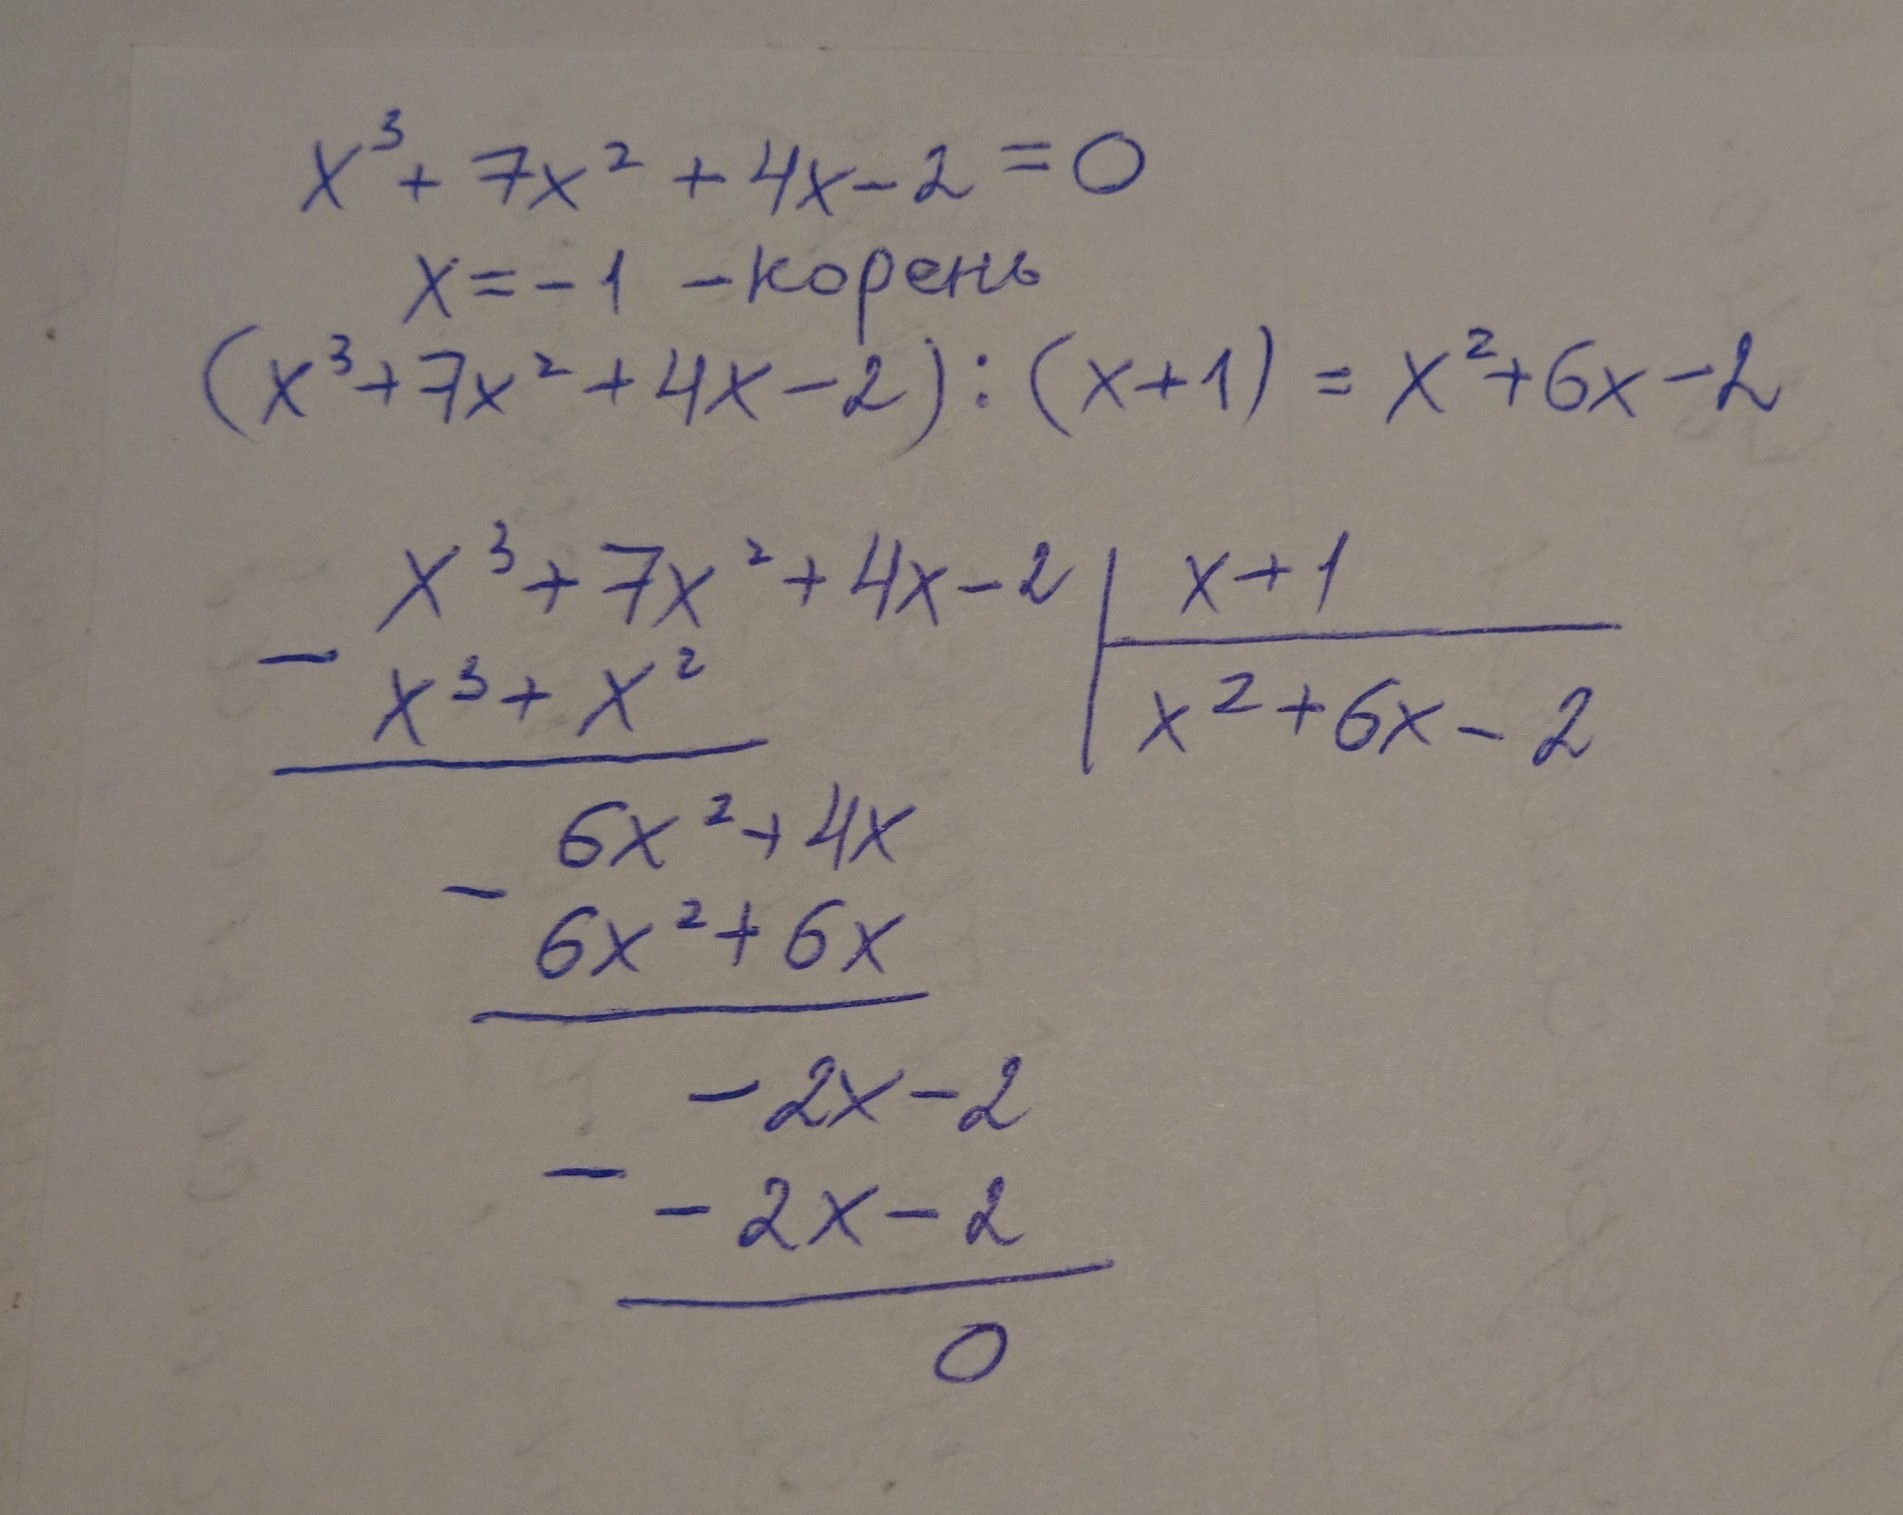 x³ + 7x² + 4x - 2 = 0
x = -1 - корень
(x³ + 7x² + 4x - 2) : (x + 1) = x² + 6x - 2
x³ + 7x² + 4x - 2 | x + 1
- x³ + x² | x² + 6x - 2
6x² + 4x
- 6x² + 6x
- 2x - 2
- - 2x - 2
0